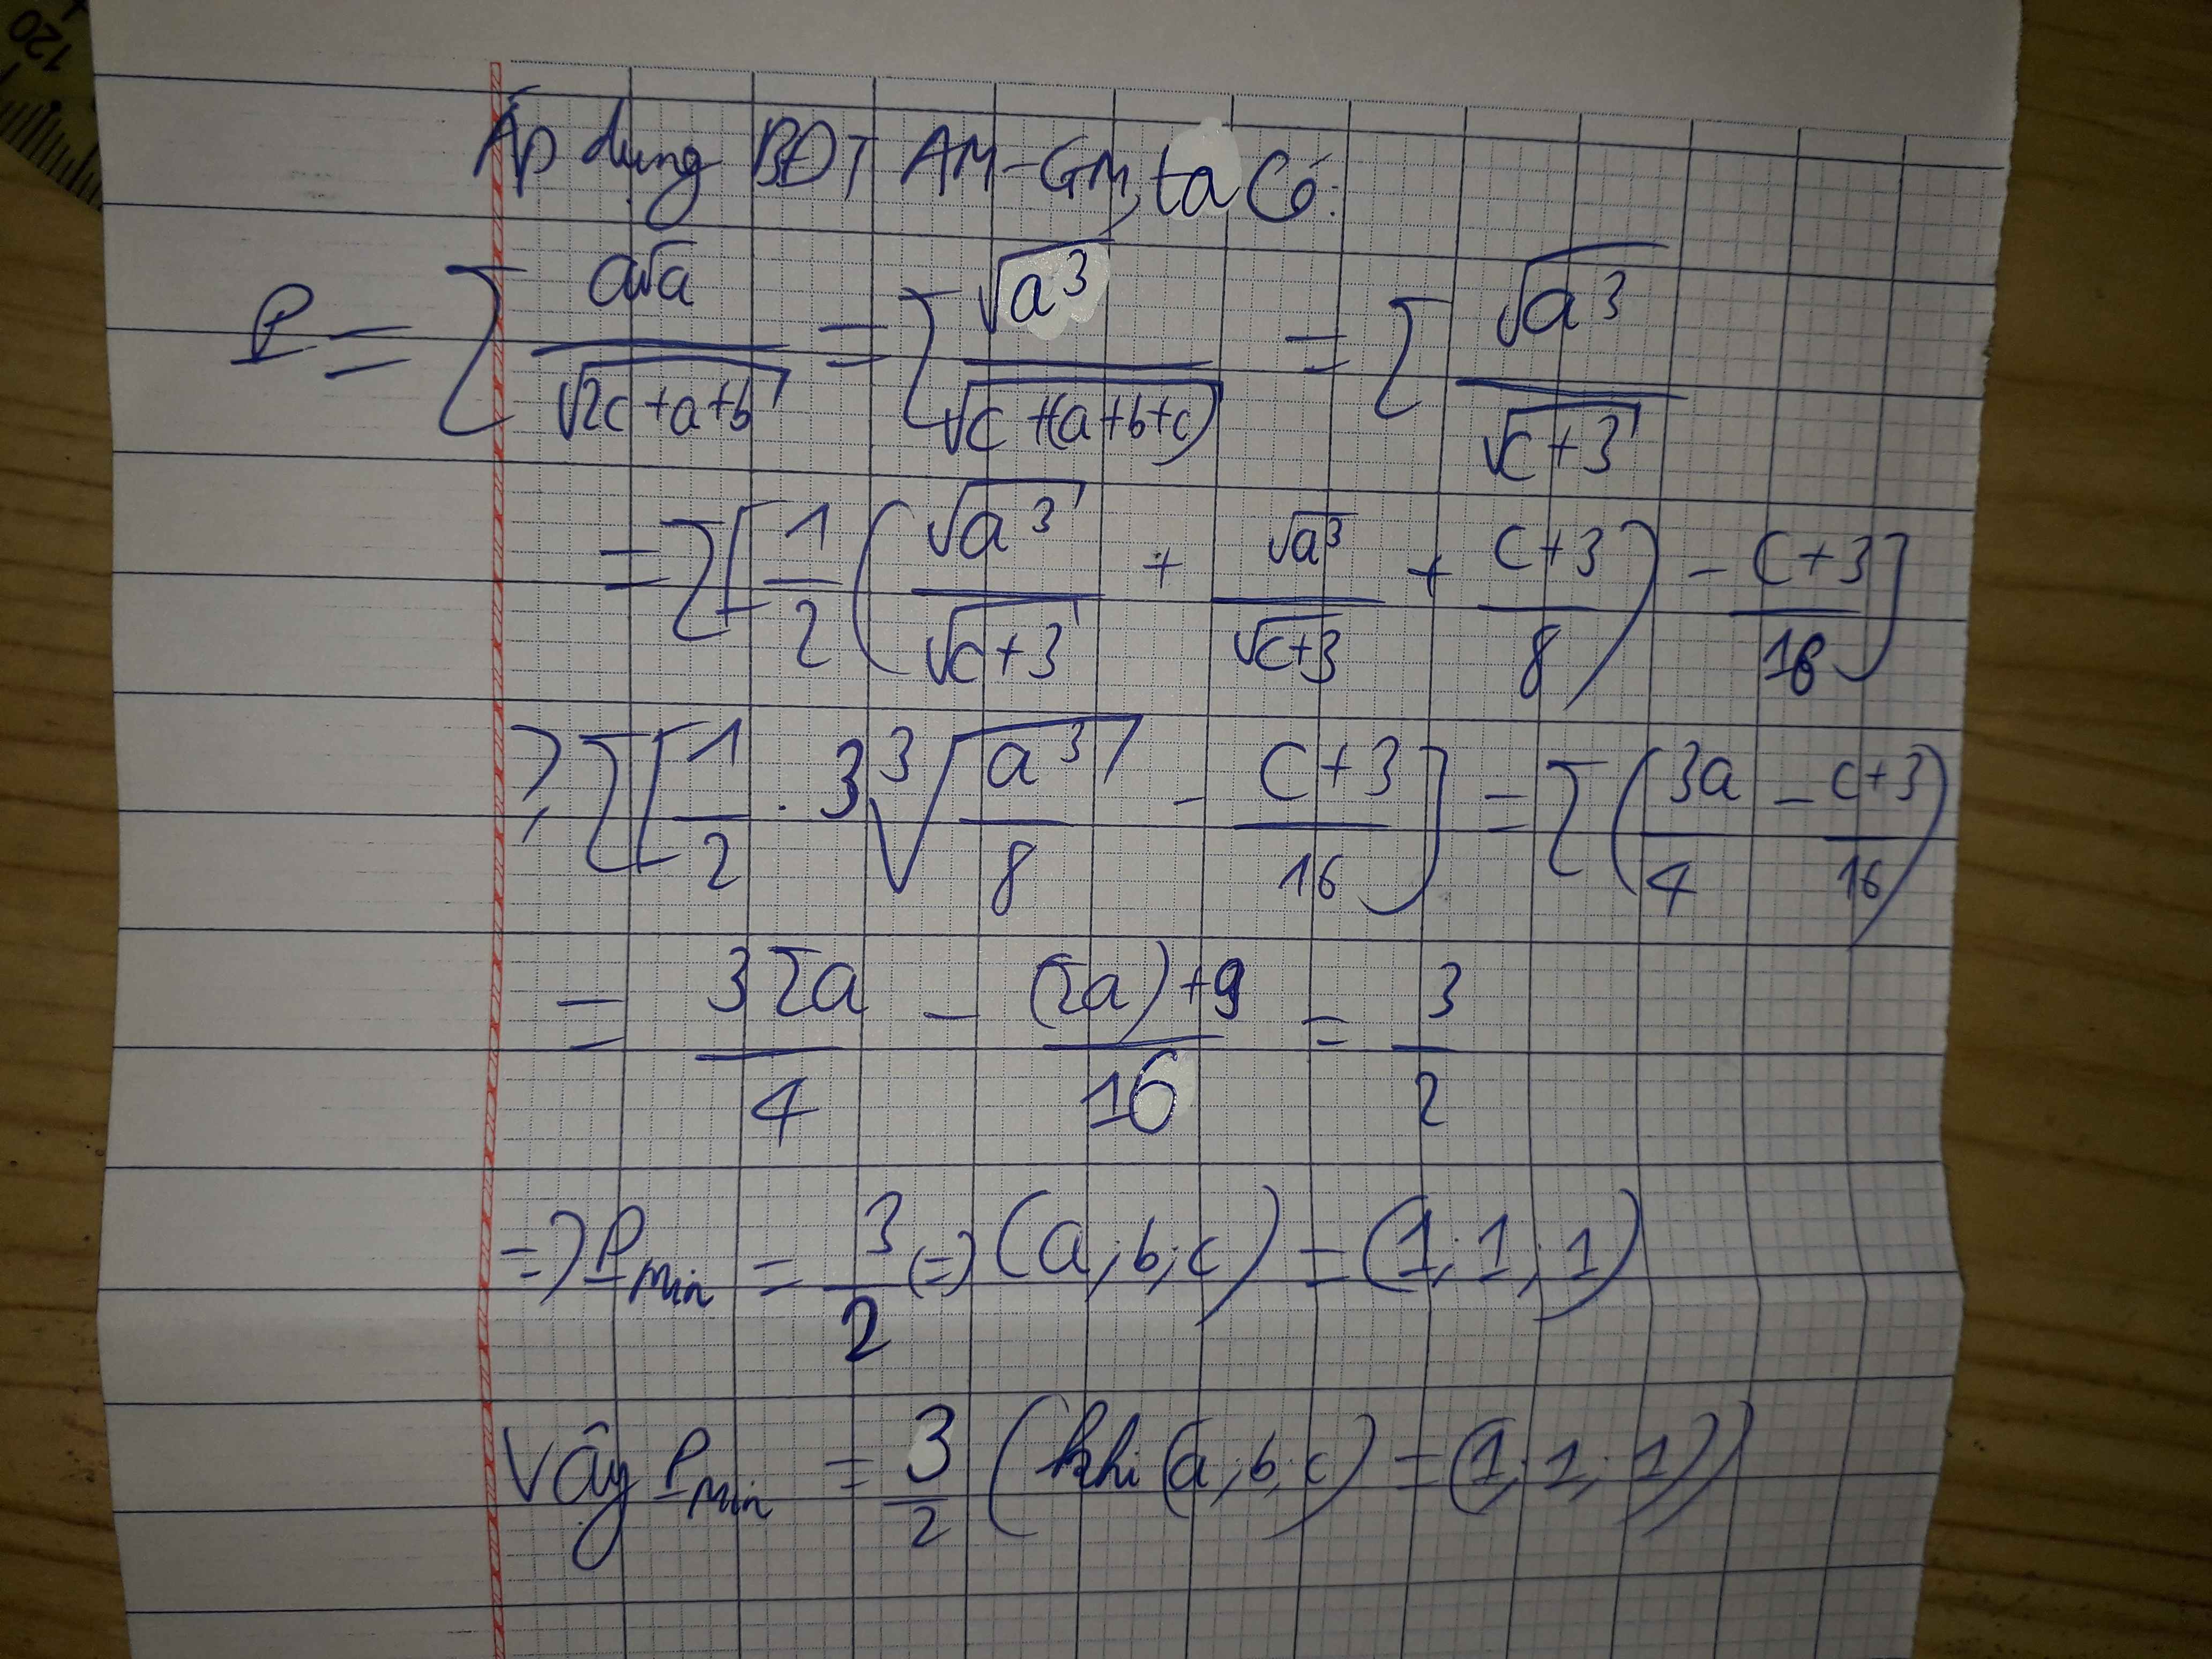 120
Áp dụng BĐT AM-GM, ta có:
P = Σ a√a / √(2c+a+b) = Σ √(a³) / √(c+(a+b+c)) = Σ √(a³) / √(c+3)
= Σ[1/2 (√(a³)/√(c+3) + √(a³)/√(c+3) + (c+3)/8) - (c+3)/16]
≥ Σ[1/2 . 3 ∛(a³/8) - (c+3)/16] = Σ(3a/4 - (c+3)/16)
= 3Σa/4 - ((Σa)+9)/16 = 3/2
=> P min = 3/2 (=) (a;b;c) = (1;1;1)
Vậy P min = 3/2 (khi (a;b;c) = (1;1;1))